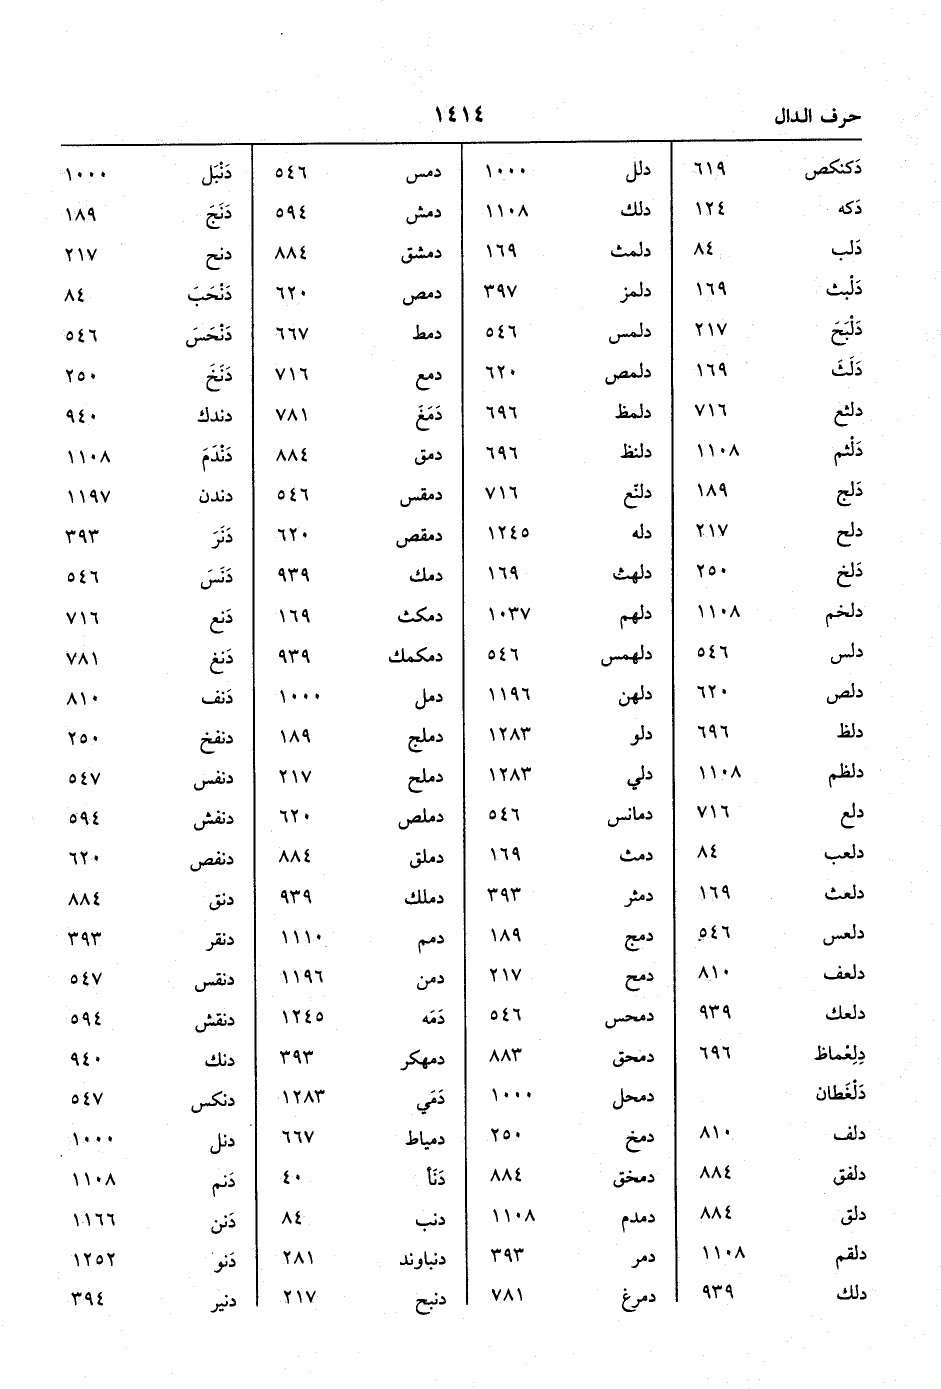 حرف الدال ١٤١٤
دَكنكص ٦١٩
دَكه ١٢٤
دَلب ٨٤
دَلْبث ١٦٩
دَلْبَحَ ٢١٧
دَلَثَ ١٦٩
دلثع ٧١٦
دَلْثم ١١٠٨
دَلج ١٨٩
دلح ٢١٧
دَلخ ٢٥٠
دلخم ١١٠٨
دلس ٥٤٦
دلص ٦٢٠
دلظ ٦٩٦
دلظم ١١٠٨
دلع ٧١٦
دلعب ٨٤
دلعث ١٦٩
دلعس ٥٤٦
دلعف ٨١٠
دلعك ٩٣٩
دِلِعْماظ ٦٩٦
دَلْغَطان
دلف ٨١٠
دلفق ٨٨٤
دلق ٨٨٤
دلقم ١١٠٨
دلك ٩٣٩
دلل ١٠٠٠
دلك ١١٠٨
دلمث ١٦٩
دلمز ٣٩٧
دلمس ٥٤٦
دلمص ٦٢٠
دلمظ ٦٩٦
دلنظ ٦٩٦
دلنّع ٧١٦
دله ١٢٤٥
دلهث ١٦٩
دلهم ١٠٣٧
دلهمس ٥٤٦
دلهن ١١٩٦
دلو ١٢٨٣
دلي ١٢٨٣
دمانس ٥٤٦
دمث ١٦٩
دمثر ٣٩٣
دمج ١٨٩
دمح ٢١٧
دمحس ٥٤٦
دمحق ٨٨٣
دمحل ١٠٠٠
دمخ ٢٥٠
دمخق ٨٨٤
دمدم ١١٠٨
دمر ٣٩٣
دمرغ ٧٨١
دمس ٥٤٦
دمش ٥٩٤
دمشق ٨٨٤
دمص ٦٢٠
دمط ٦٦٧
دمع ٧١٦
دَمَغَ ٧٨١
دمق ٨٨٤
دمقس ٥٤٦
دمقص ٦٢٠
دمك ٩٣٩
دمكث ١٦٩
دمكمك ٩٣٩
دمل ١٠٠٠
دملج ١٨٩
دملح ٢١٧
دملص ٦٢٠
دملق ٨٨٤
دملك ٩٣٩
دمم ١١١٠
دمن ١١٩٦
دَمَه ١٢٤٥
دمهكر ٣٩٣
دَمَي ١٢٨٣
دمياط ٦٦٧
دَنَأ ٤٠
دنب ٨٤
دنباوند ٢٨١
دنبح ٢١٧
دَنْبَل ١٠٠٠
دَنَجَ ١٨٩
دنح ٢١٧
دَنْحَبَ ٨٤
دَنْحَسَ ٥٤٦
دَنَخَ ٢٥٠
دندك ٩٤٠
دَنْدَمَ ١١٠٨
دندن ١١٩٧
دَنَرَ ٣٩٣
دَنَسَ ٥٤٦
دَنع ٧١٦
دَنغ ٧٨١
دَنف ٨١٠
دنفخ ٢٥٠
دنفس ٥٤٧
دنفش ٥٩٤
دنفص ٦٢٠
دنق ٨٨٤
دنقر ٣٩٣
دنقس ٥٤٧
دنقش ٥٩٤
دنك ٩٤٠
دنكس ٥٤٧
دنل ١٠٠٠
دَنم ١١٠٨
دَنن ١١٦٦
دَنو ١٢٥٢
دنير ٣٩٤